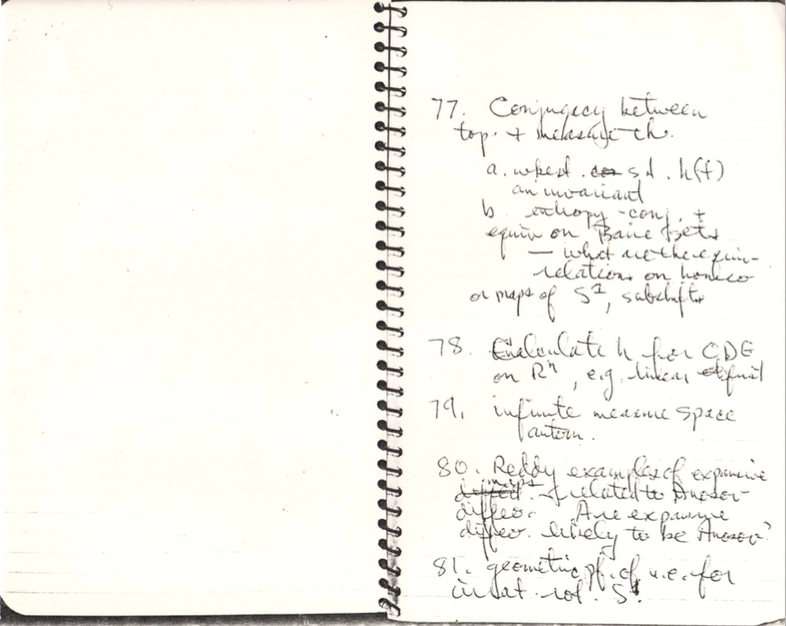 77. Conjugacy between
top. + measure th.
a. when . s.d. h(f)
an invariant
b entropy-conj. +
equiv on Baire sets
— what are the equiv-
relations on homeo
or maps of S¹, subshifts
78. Calculate h for ODE
on Rⁿ, e.g. linear
79. infinite measure space
autom.
80. Reddy examples of expansive
maps + related to Anosov
diffeo. Are expansive
diffeo. likely to be Anosov?
81. geometric pf. of u.e. for
irrat. rot. S¹.